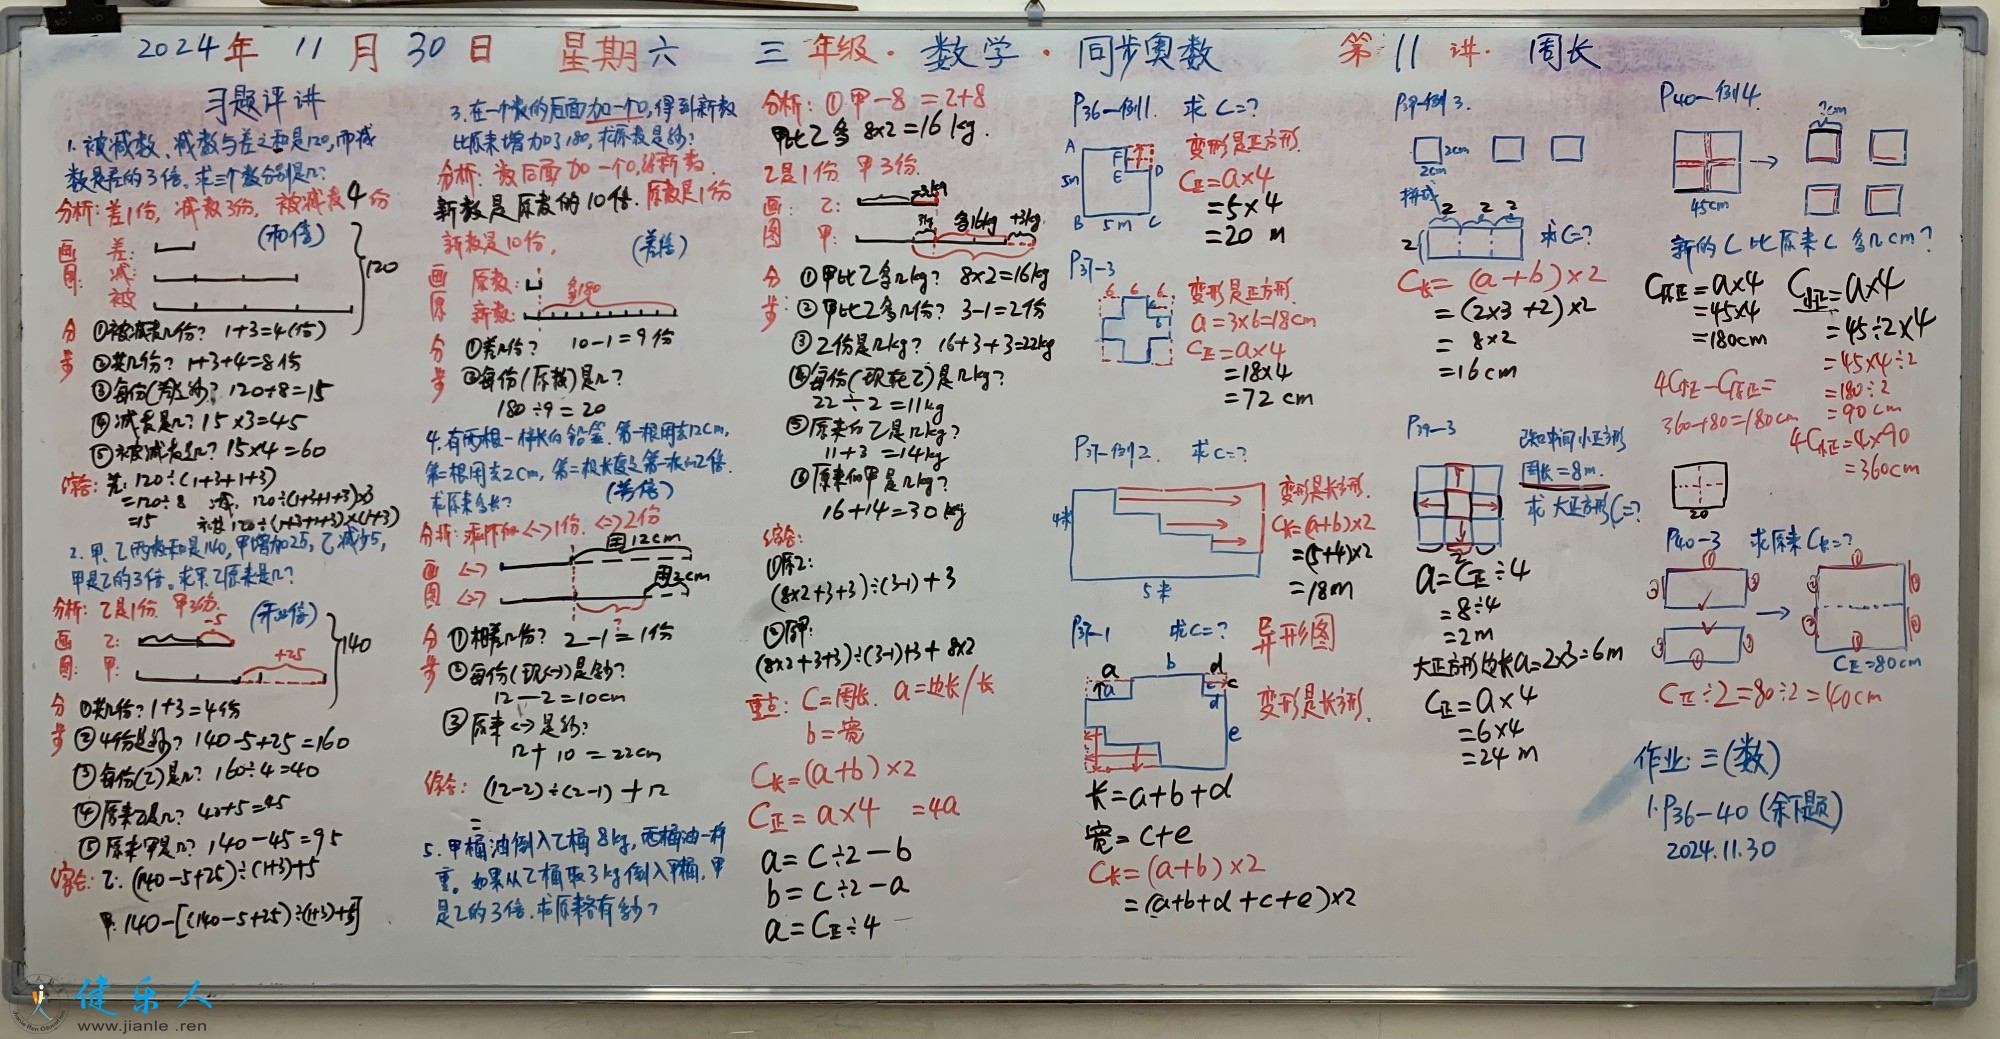 2024年 11 月 30 日 星期六 三年级·数学·同步奥数 第 11 讲·周长
习题评讲
1. 被减数、减数与差之和是120,而减
数是差的3倍。求三个数分别是几?
分析:差1份,减数3份,被减数4份
(和倍)
画 差:
图: 减:
被
120
分 ①被减数几份? 1+3=4(份)
步 ②共几份? 1+3+4=8份
③每份(差)是多少? 120÷8=15
④减数是几? 15×3=45
⑤被减数是几? 15×4=60
综合: 差: 120÷(1+3+1+3)
=120÷8 减: 120÷(1+3+1+3)×3
=15 被 120÷(1+3+1+3)×(1+3)
2. 甲、乙两数和是140,甲增加25,乙减少5,
甲是乙的3倍。求甲、乙原来是几?
分析: 乙是1份 甲3份. (和倍)
画 乙: -5
图: 甲: +25
140
分 ①共几份? 1+3=4份
步 ②4份是多少? 140-5+25=160
③每份(乙)是几? 160÷4=40
④原来乙是几? 40+5=45
⑤原来甲是几? 140-45=95
综合: 乙: (140-5+25)÷(1+3)+5
甲: 140-[(140-5+25)÷(1+3)+5]
3. 在一个数的后面加一个0,得到新数
比原来增加了180,求原数是多少?
分析: 数后面加一个0,得新数.
新数是原数的10倍. 原数是1份
新数是10份, (差倍)
画 原数:
图 新数: 多180
分 ①差几份? 10-1=9份
步 ②每份(原数)是几?
180÷9=20
4. 有两根一样长的铅笔.第一根用去12cm,
第二根用去2cm,第二根长度是第一根的2倍.
求原来多长? (差倍)
用12cm
画 <->
图 <=>
用2cm
?
分 ①相差几份? 2-1=1份
步 ②每份(现<->)是多少?
12-2=10cm
③原来<->是多少?
12+10=22cm
综合: (12-2)÷(2-1)+12
=
5. 甲桶油倒入乙桶8kg,两桶油一样
重。如果从乙桶取3kg倒入甲桶,甲
是乙的3倍.求原来各有多少?
分析: ①甲-8=2+8
甲比乙多 8×2=16kg.
乙是1份 甲3份.
画 乙: -3kg
图 甲: 3kg 多16kg +3kg
分 ①甲比乙多几kg? 8×2=16kg
步: ②甲比乙多几份? 3-1=2份
③2份是几kg? 16+3+3=22kg
④每份(现在乙)是几kg?
22÷2=11kg
⑤原来的乙是几kg?
11+3=14kg
⑥原来的甲是几kg?
16+14=30kg
综合:
①原乙:
(8×2+3+3)÷(3-1)+3
②原甲:
(8×2+3+3)÷(3-1)+3+8×2
重点: C=周长. a=边长/长
b=宽
C长=(a+b)×2
C正=a×4 =4a
a=C÷2-b
b=C÷2-a
a=C正÷4
P36-例1 求C=?
A F E D 5m B 5m C
变形是正方形.
C正=a×4
=5×4
=20 m
P37-3
6 6 6
6
变形是正方形.
a=3×6=18cm
C正=a×4
=18×4
=72 cm
P37-例2. 求C=?
4米
5米
变形是长方形.
C长=(a+b)×2
=(5+4)×2
=18m
求C=?
异形图
变形是长方形.
a b d
a c c
d
e
长=a+b+d
宽=c+e
C长=(a+b)×2
=(a+b+d+c+e)×2
P39-例3.
2cm
2cm
拼成
2 2 2
2
求C=?
C长=(a+b)×2
=(2×3+2)×2
= 8×2
=16cm
P39-3
已知中间小正方形
周长=8m.
求大正方形C=?
2
a=C正÷4
=8÷4
=2m
大正方形边长a=2×3=6m
C正=a×4
=6×4
=24 m
P40-例4.
?cm
45cm
新的C比原来C多几cm?
C原正=a×4
=45×4
=180cm
C小正=a×4
=45÷2×4
=45×4÷2
=180÷2
=90cm
4C小正-C原正=
360-180=180cm
4C小正=4×90
=360cm
20
P40-3 求原来C长=?
① ② ③
C正=80cm
C正÷2=80÷2=40cm
作业:三(数)
1. P36-40(余下题)
2024.11.30
健乐人
www.jianle.ren